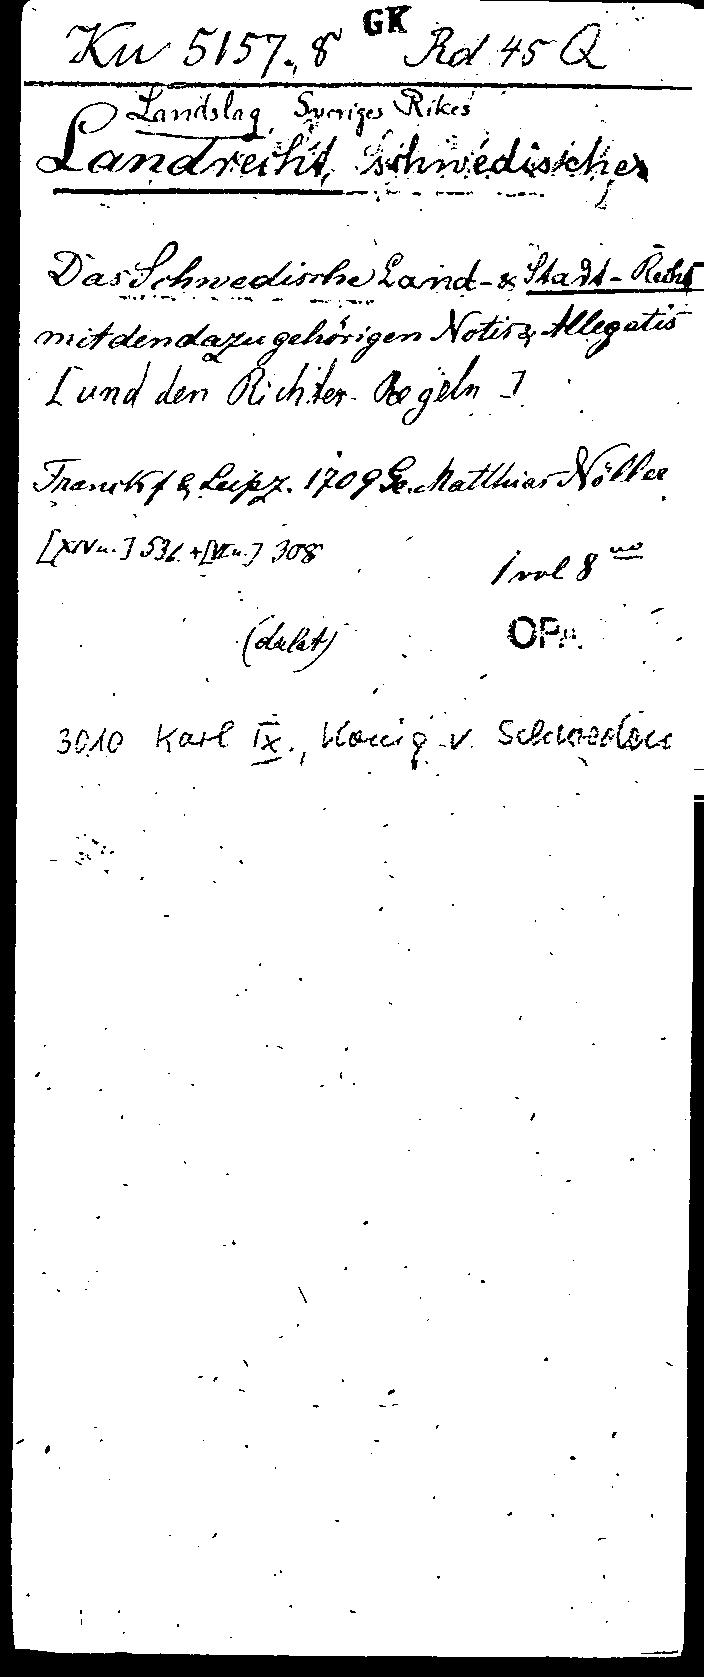 GK
Ku 5157, 8 Rd 45 Q
Landslag, Sveriges Rikes
Landrecht, Schwedisches
Das Schwedische Land- & Stadt-Recht
mit den dazu gehörigen Notis & Allegatis
[und den Richter-Regeln]
Franckf & Leipz. 1709 Ge. Matthias Nöller
[XIV u.] 536 + [VI u.] 308
1 vol 8vo
(dubt)
3010 Karl IX., König v. Schweden